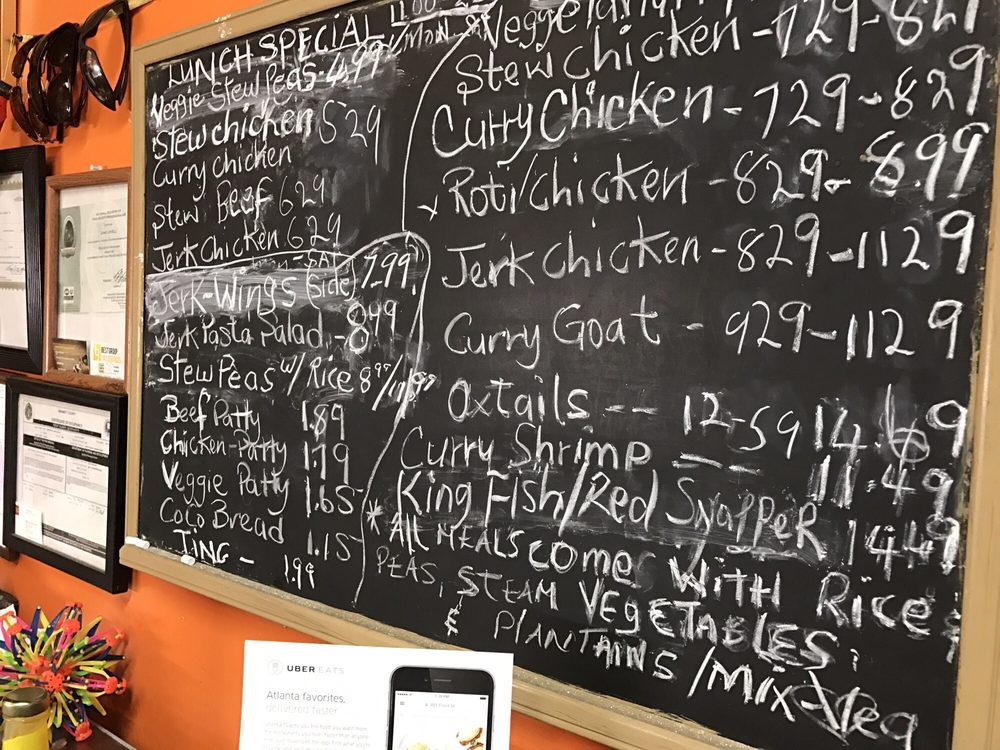 LUNCH SPECIAL
Veggie Stew Peas 4.99
Stewchicken 529
Curry chicken
Stew Beef 629
Jerk Chicken 629
Jerk-Wings (Side) 7.99
Jerk Pasta Palad - 8
Stew Peas w/ Rice 8
Beef Patty 1.89
Chicken-Patty 1.79
Veggie Patty 1.65
CoCo Bread 1.15
TING - 1.99
Stew Chicken - 729 - 829
Curry Chicken - 729 - 829
Roti/Chicken - 829 - 8.99
Jerk Chicken - 829 - 1129
Curry Goat - 929 - 1129
Oxtails -- 12-59
Curry Shrimp -- 11.49
King Fish/Red SNaPPeR 1449
* All MEALS COME WITH Rice &
PEAS, STEAM VEGETABLES,
& PLANTAINS / Mix-Veg
UBER EATS
Atlanta favorites,
delivered faster